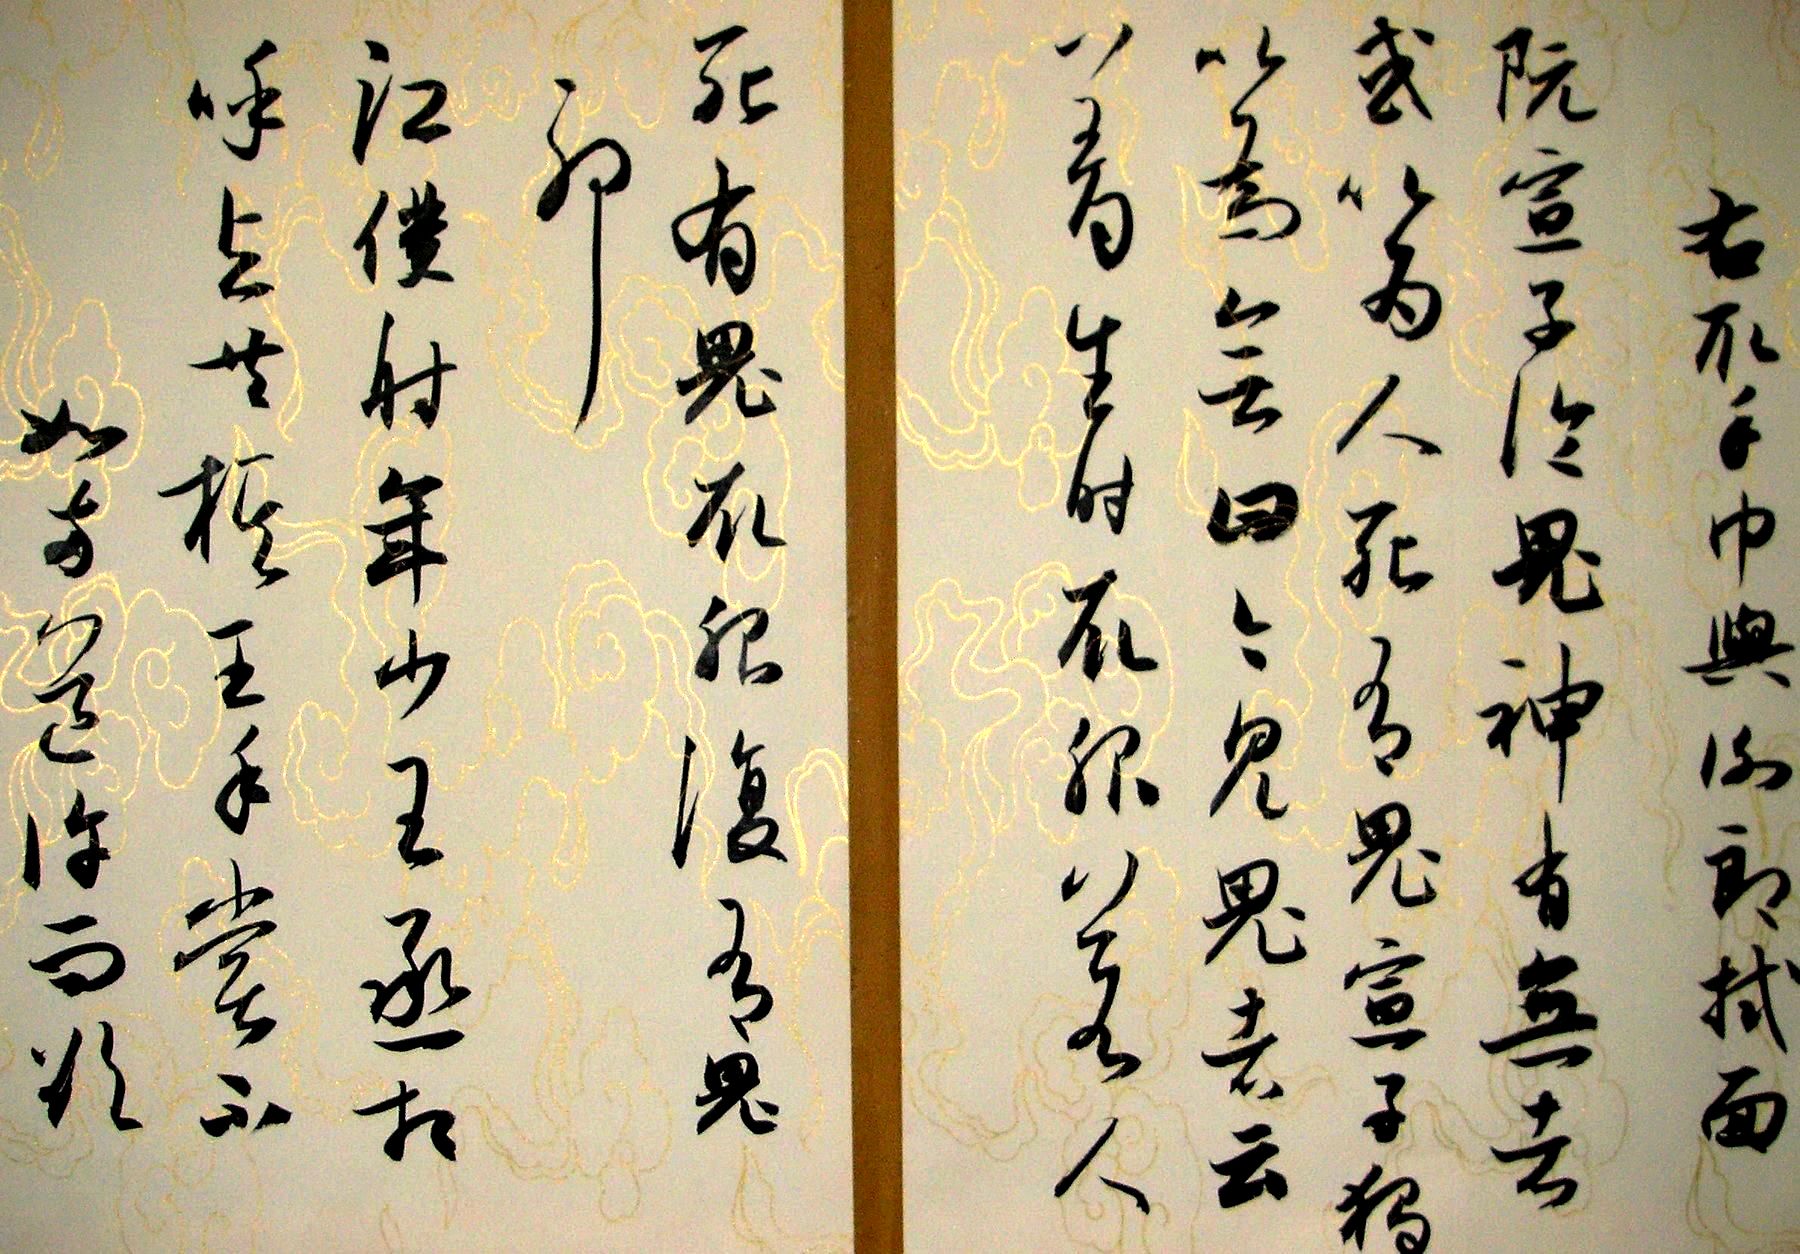 右取手巾與謝郎拭面
阮宣子論鬼神有無者
或以為人死有鬼宣子獨
以為無曰今見鬼者云
著生時衣服若人
死有鬼衣服復有鬼
邪
江僕射年少王丞相
呼與共棋王手嘗不
如兩道許而欲